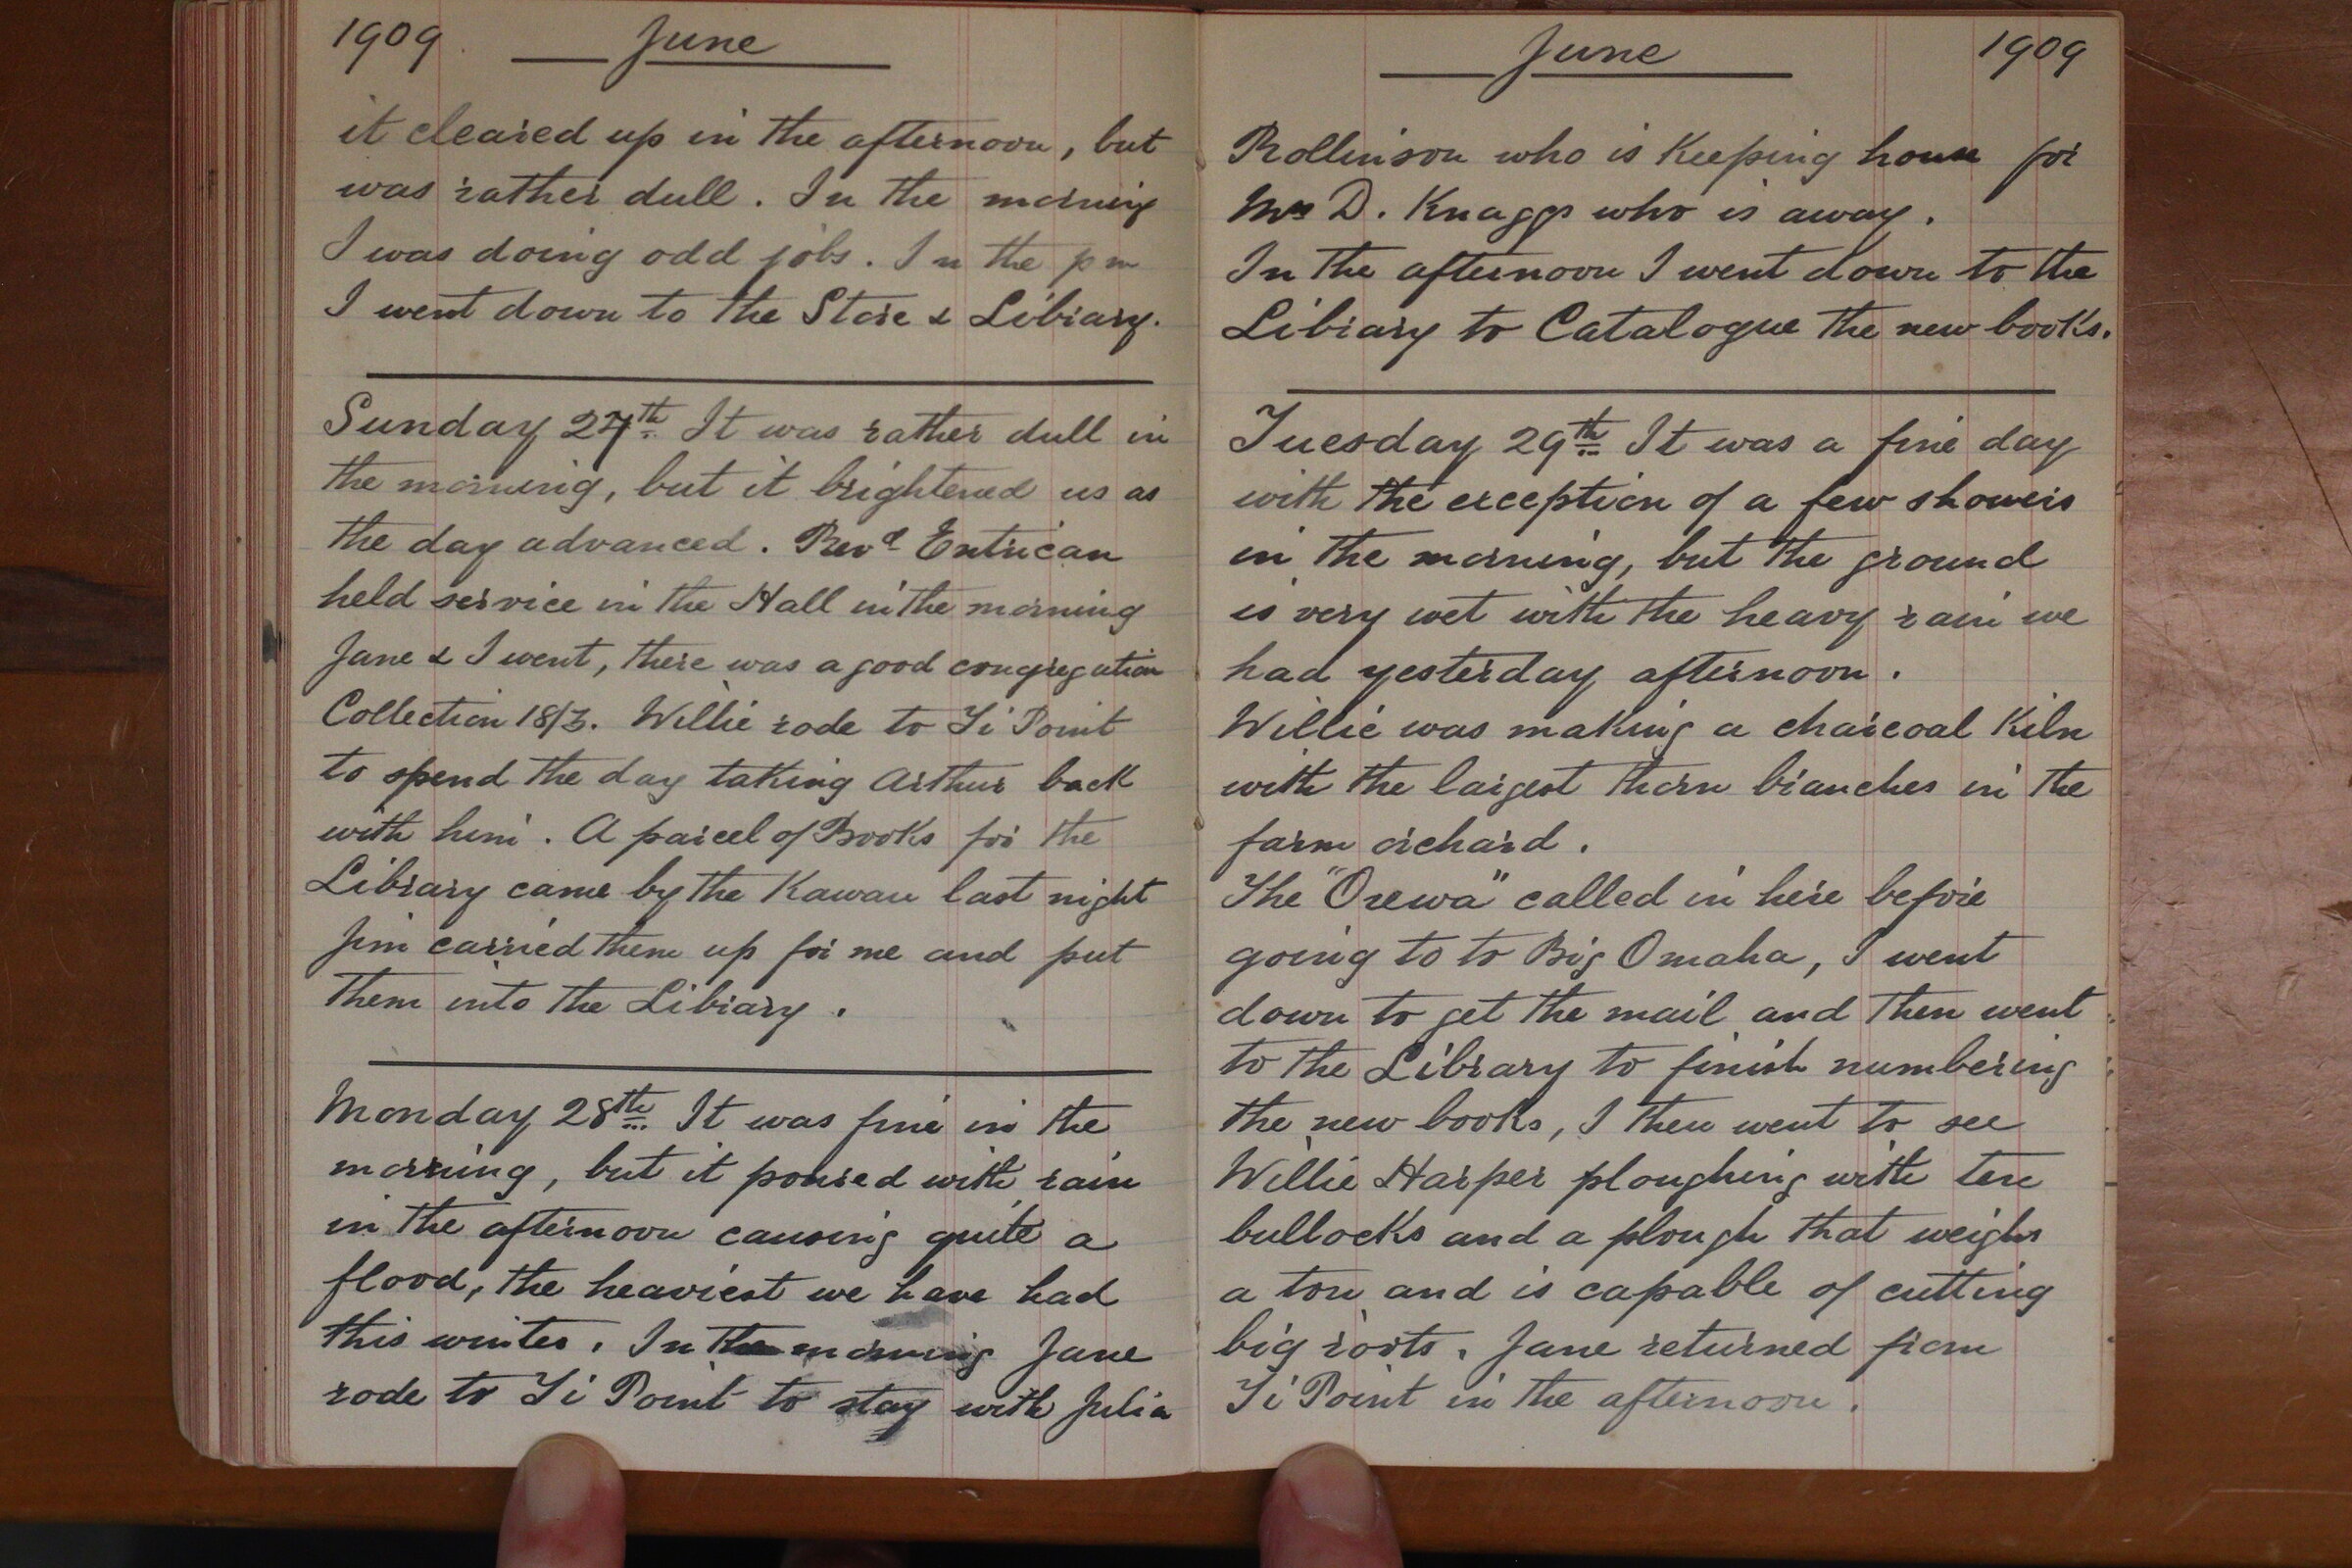 1909 June
it cleared up in the afternoon, but
was rather dull. In the morning
I was doing odd jobs. In the pm
I went down to the Store & Library.
Sunday 27th. It was rather dull in
the morning, but it brightened us as
the day advanced. Revd Entrican
held service in the Hall in the morning
Jane & I went, there was a good congregation
Collection 18/3. Willie rode to Ti Point
to spend the day taking Arthur back
with him. A parcel of Books for the
Library came by the Kawau last night
Jim carried them up for me and put
them into the Library.
Monday 28th. It was fine in the
morning, but it poured with rain
in the afternoon causing quite a
flood, the heaviest we have had
this winter. In the morning Jane
rode to Ti Point to stay with Julia
June 1909
Rollinson who is keeping house for
Mrs D. Knaggs who is away.
In the afternoon I went down to the
Library to Catalogue the new books.
Tuesday 29th. It was a fine day
with the exception of a few showers
in the morning, but the ground
is very wet with the heavy rain we
had yesterday afternoon.
Willie was making a charcoal Kiln
with the largest thorn branches in the
farm orchard.
The "Orewa" called in here before
going to to Big Omaha, I went
down to get the mail and then went
to the Library to finish numbering
the new books, I then went to see
Willie Harper ploughing with ten
bullocks and a plough that weighs
a ton and is capable of cutting
big roots. Jane returned from
Ti Point in the afternoon.